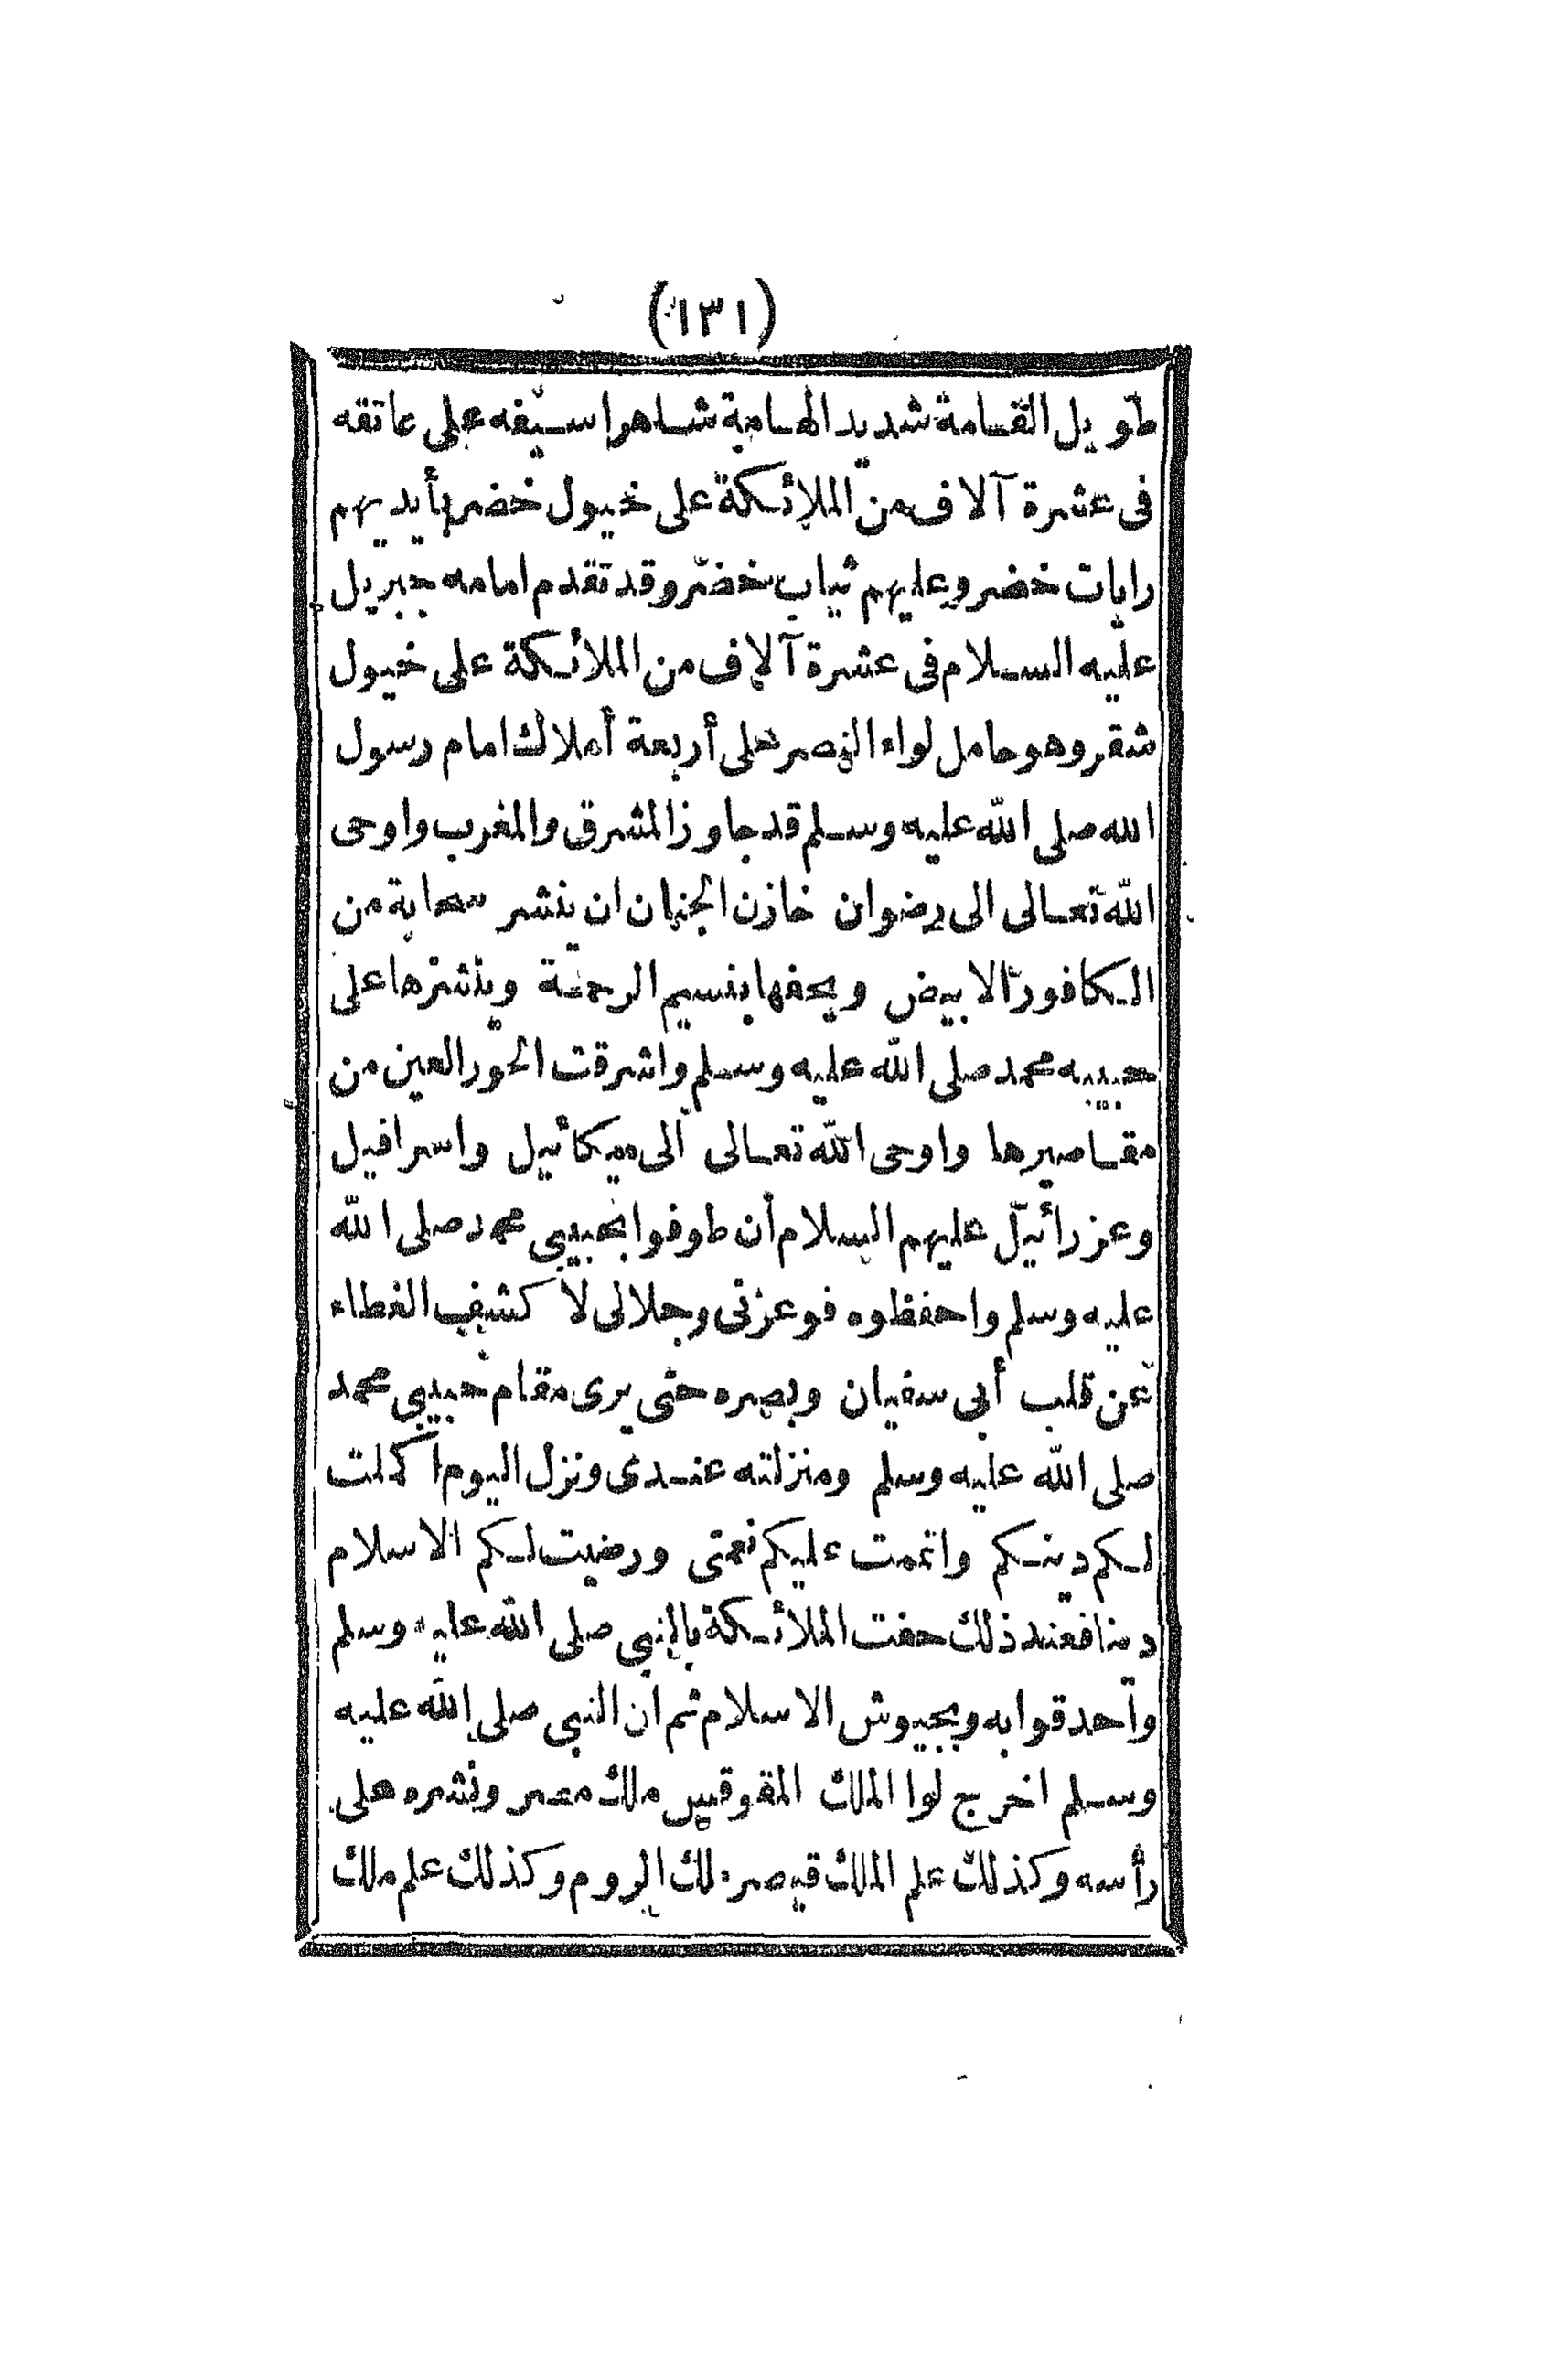 (١٣١)
طويل القامة شديد الهامة شاهرا سيفه على عاتقه
فى عشرة آلاف من الملائكة على خيول خضر بأيديهم
رايات خضر وعليهم ثياب خضر وقد تقدم امامه جبريل
عليه السلام فى عشرة آلاف من الملائكة على خيول
شقر وهو حامل لواء النصر على أربعة أملاك امام رسول
الله صلى الله عليه وسلم قد جاوز المشرق والمغرب واوحى
الله تعالى الى رضوان خازن الجنان ان ينشر سحابة من
الكافور الابيض ويحفها بنسيم الرحمة وينشرها على
حبيبه محمد صلى الله عليه وسلم واشرقت الحور العين من
مقاصيرها واوحى الله تعالى الى ميكائيل واسرافيل
وعزرائيل عليهم السلام أن طوفوا بحبيبى محمد صلى الله
عليه وسلم واحفظوه فوعزتى وجلالى لا كشفن الغطاء
عن قلب أبى سفيان وبصره حتى يرى مقام حبيبى محمد
صلى الله عليه وسلم ومنزلته عندى ونزل اليوم اكملت
لكم دينكم واتممت عليكم نعمتى ورضيت لكم الاسلام
دينا فعند ذلك حفت الملائكة بالنبى صلى الله عليه وسلم
وأحدقوا به وبجيوش الاسلام ثم ان النبى صلى الله عليه
وسلم اخرج لوا الملك المقوقس ملك مصر ونشره على
رأسه وكذلك علم الملك قيصر ملك الروم وكذلك علم ملك